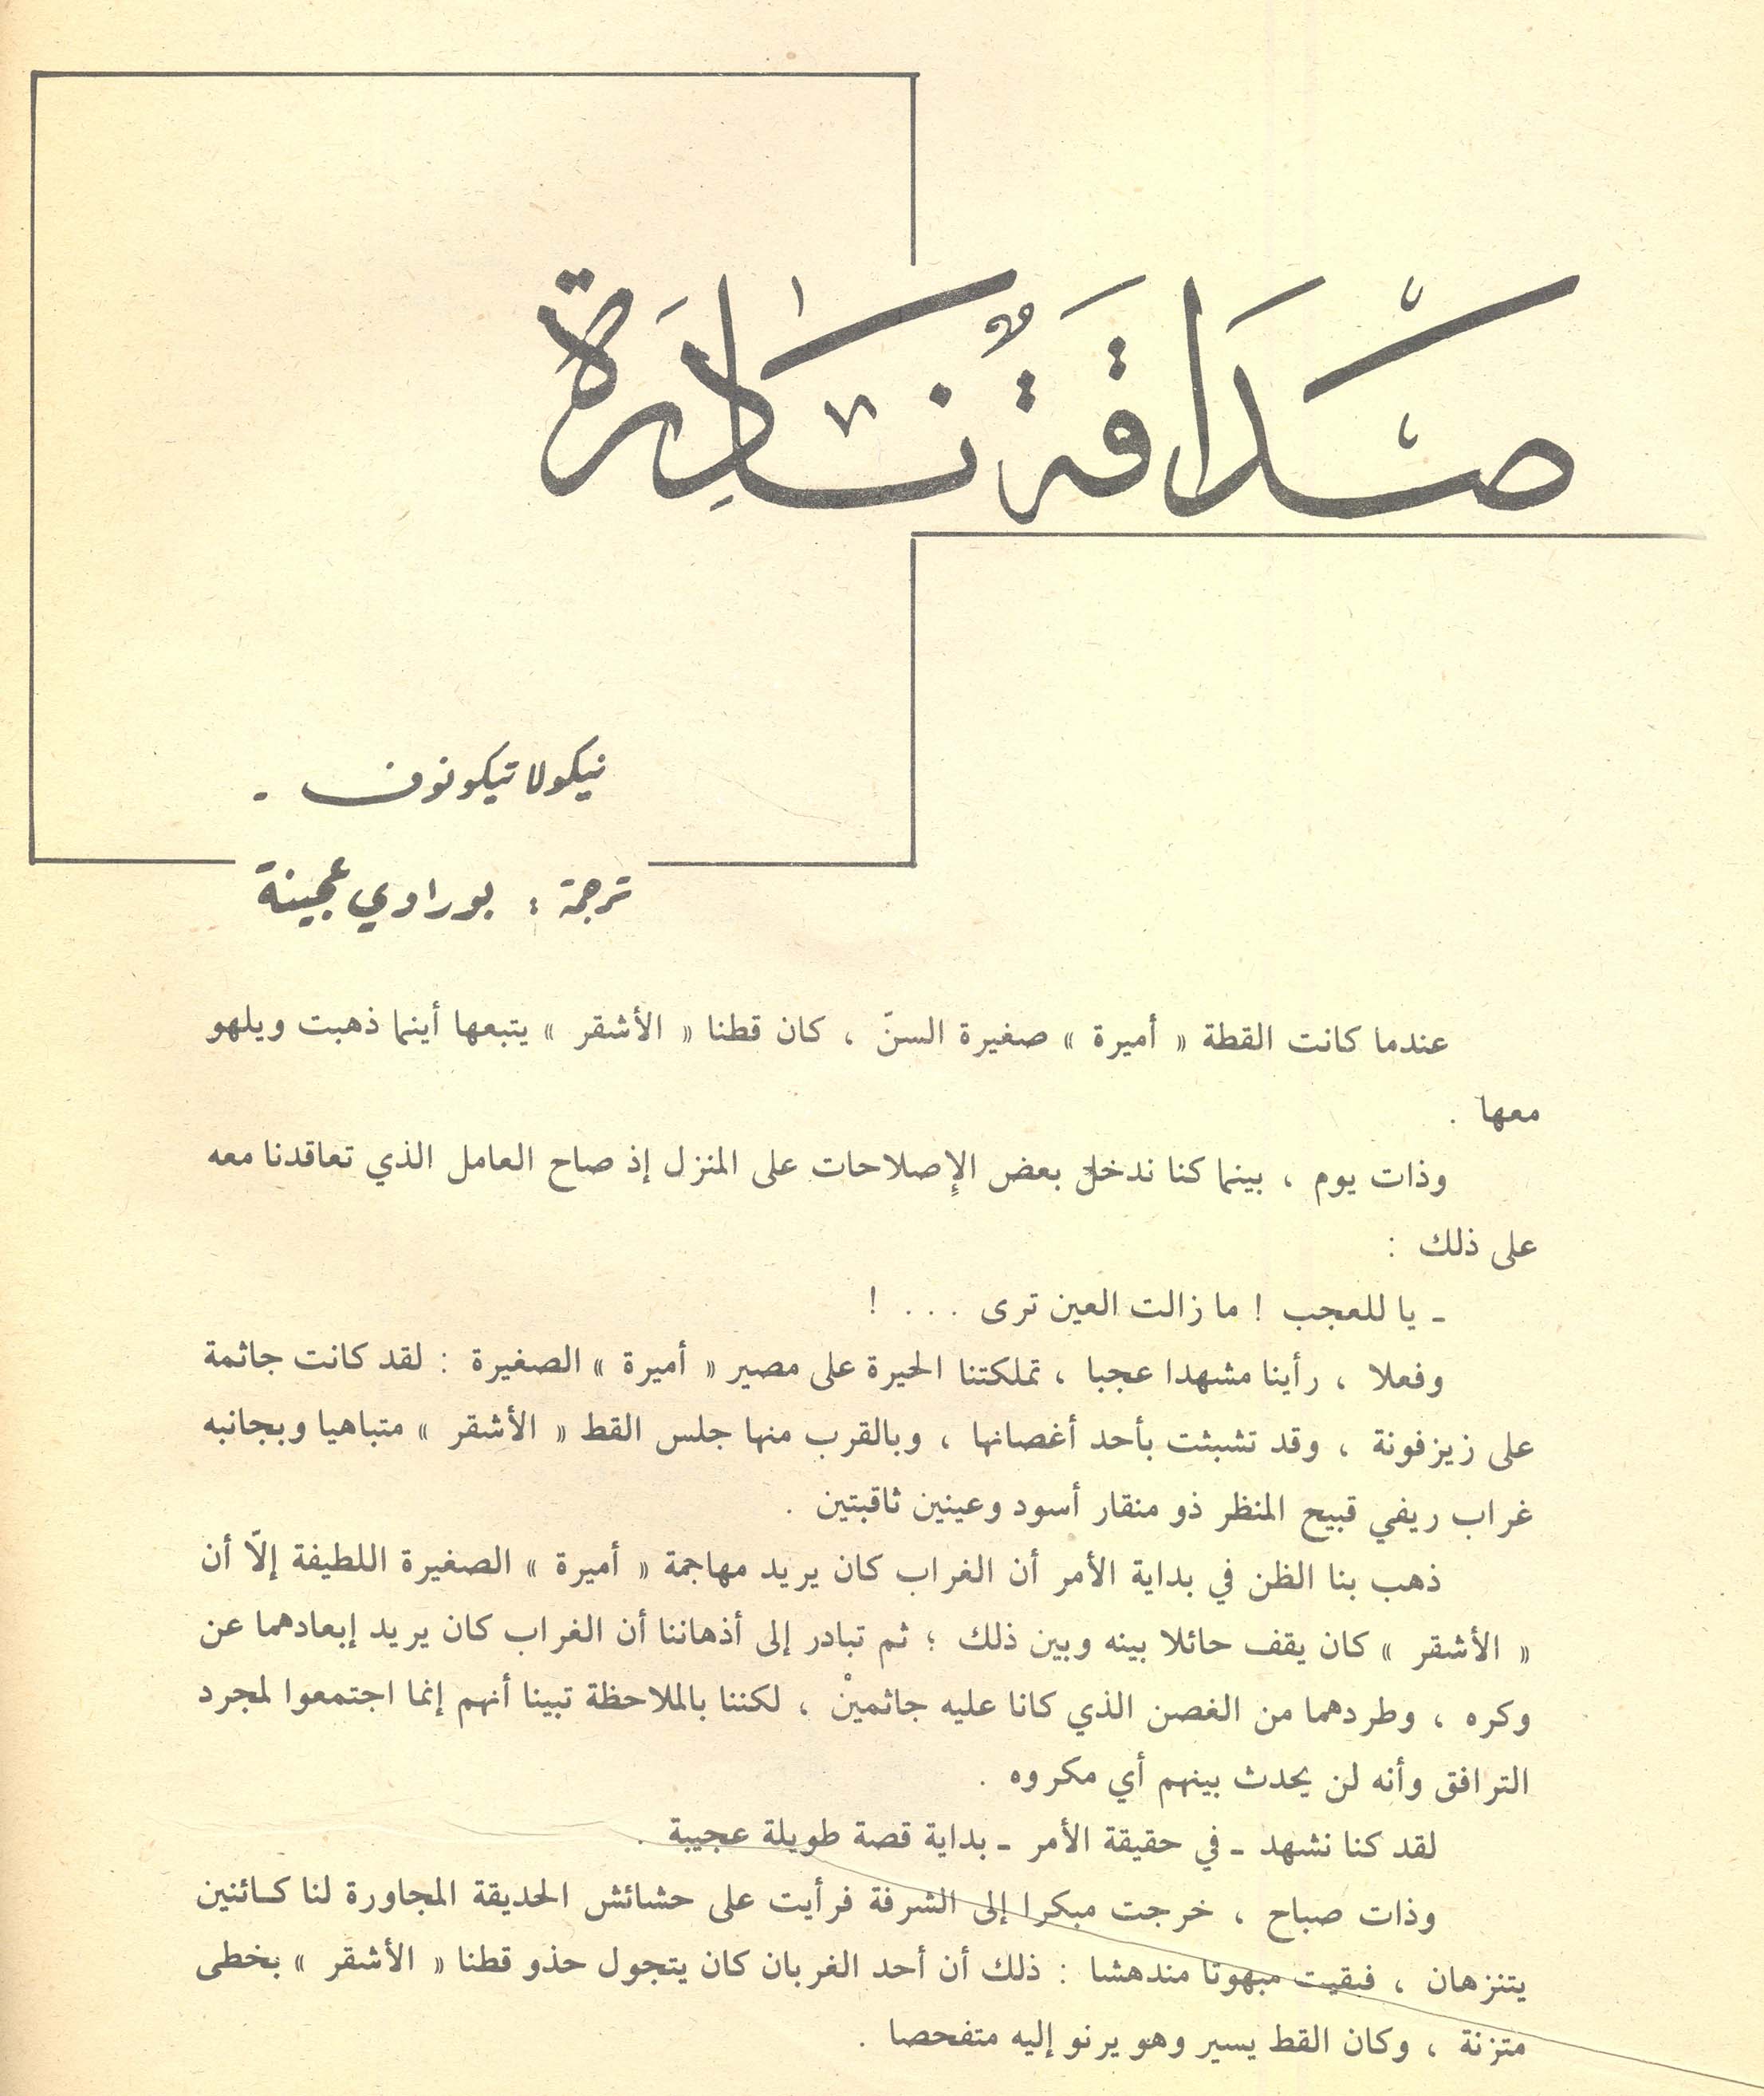 صَدَاقَةٌ نَادِرَة
نيكولا تيكونوف -
ترجمة : بوراوي عجينة
عندما كانت القطة « أميرة » صغيرة السنّ ، كان قطنا « الأشقر » يتبعها أينما ذهبت ويلهو
معها .
وذات يوم ، بينما كنا ندخل بعض الإصلاحات على المنزل إذ صاح العامل الذي تعاقدنا معه
على ذلك :
ـ يا للعجب ! ما زالت العين ترى . . . !
وفعلا ، رأينا مشهدا عجبا ، تملكتنا الحيرة على مصير « أميرة » الصغيرة : لقد كانت جاثمة
على زيزفونة ، وقد تشبثت بأحد أغصانها ، وبالقرب منها جلس القط « الأشقر » متباهيا وبجانبه
غراب ريفي قبيح المنظر ذو منقار أسود وعينين ثاقبتين .
ذهب بنا الظن في بداية الأمر أن الغراب كان يريد مهاجمة « أميرة » الصغيرة اللطيفة إلاّ أن
« الأشقر » كان يقف حائلا بينه وبين ذلك ؛ ثم تبادر إلى أذهاننا أن الغراب كان يريد إبعادهما عن
وكره ، وطردهما من الغصن الذي كانا عليه جاثميْن ، لكننا بالملاحظة تبينا أنهم إنما اجتمعوا لمجرد
الترافق وأنه لن يحدث بينهم أي مكروه .
لقد كنا نشهد ـ في حقيقة الأمر ـ بداية قصة طويلة عجيبة .
وذات صباح ، خرجت مبكرا إلى الشرفة فرأيت على حشائش الحديقة المجاورة لنا كائنين
يتنزهان ، فبقيت مبهوتا مندهشا : ذلك أن أحد الغربان كان يتجول حذو قطنا « الأشقر » بخطى
متزنة ، وكان القط يسير وهو يرنو إليه متفحصا .